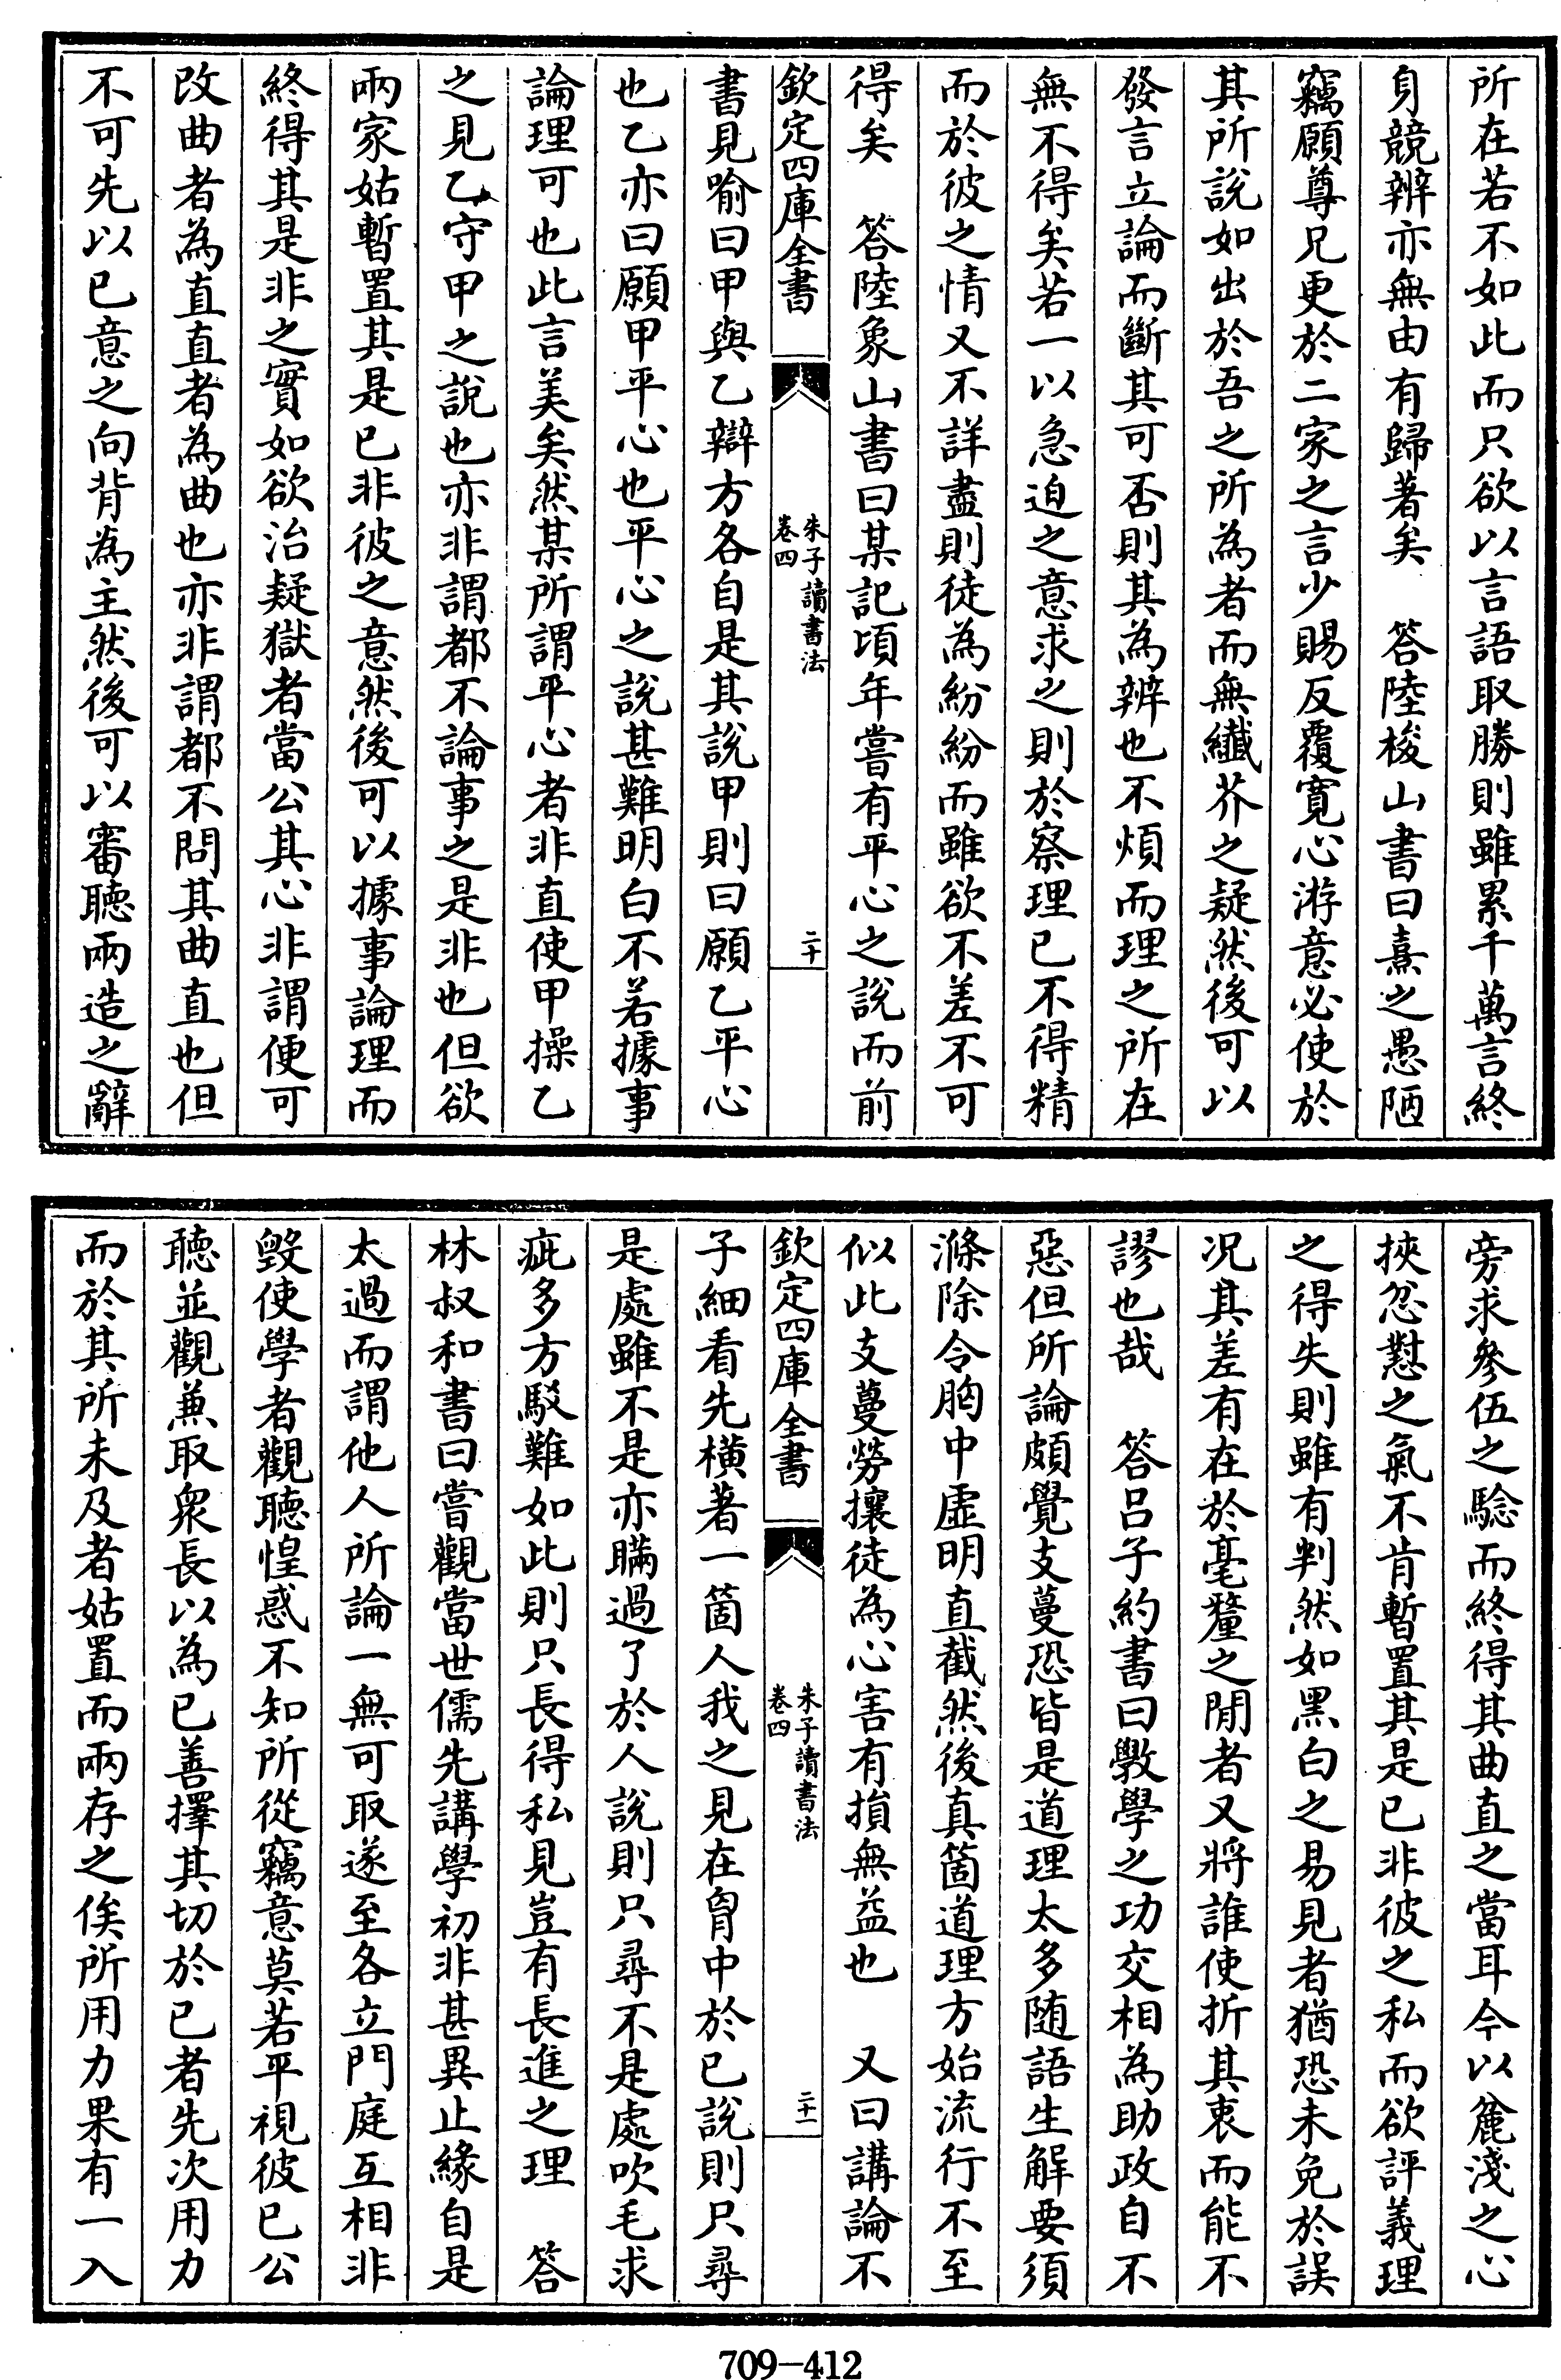 所在若不如此而只欲以言語取勝則雖累千萬言終
身競辨亦無由有歸著矣　答陸梭山書曰熹之愚陋
竊願尊兄更於二家之言少賜反覆寛心游意必使於
其所說如出於吾之所為者而無纖芥之疑然後可以
發言立論而斷其可否則其為辨也不煩而理之所在
無不得矣若一以急迫之意求之則於察理已不得精
而於彼之情又不詳盡則徒為紛紛而雖欲不差不可
得矣　答陸象山書曰某記頃年嘗有平心之說而前
欽定四庫全書
朱子讀書法
卷四
二十
書見喻曰甲與乙辯方各自是其說甲則曰願乙平心
也乙亦曰願甲平心也平心之說甚難明白不若據事
論理可也此言美矣然某所謂平心者非直使甲操乙
之見乙守甲之說也亦非謂都不論事之是非也但欲
兩家姑暫置其是已非彼之意然後可以據事論理而
終得其是非之實如欲治疑獄者當公其心非謂便可
改曲者為直直者為曲也亦非謂都不問其曲直也但
不可先以已意之向背為主然後可以審聽兩造之辭
旁求參伍之驗而終得其曲直之當耳今以麄淺之心
挾忿懟之氣不肯暫置其是已非彼之私而欲評義理
之得失則雖有判然如黑白之易見者猶恐未免於誤
况其差有在於毫釐之閒者又將誰使折其衷而能不
謬也哉　答吕子約書曰斆學之功交相為助政自不
惡但所論頗覺支蔓恐皆是道理太多随語生解要須
滌除令胸中虚明直截然後真箇道理方始流行不至
似此支蔓勞攘徒為心害有損無益也　又曰講論不
欽定四庫全書
朱子讀書法
卷四
二十一
子細看先橫著一箇人我之見在胷中於已說則只尋
是處雖不是亦瞞過了於人說則只尋不是處吹毛求
疵多方駁難如此則只長得私見豈有長進之理　答
林叔和書曰嘗觀當世儒先講學初非甚異止緣自是
太過而謂他人所論一無可取遂至各立門庭互相非
毁使學者觀聽惶惑不知所從竊意莫若平視彼已公
聽並觀兼取衆長以為已善擇其切於已者先次用力
而於其所未及者姑置而兩存之俟所用力果有一入
709—412